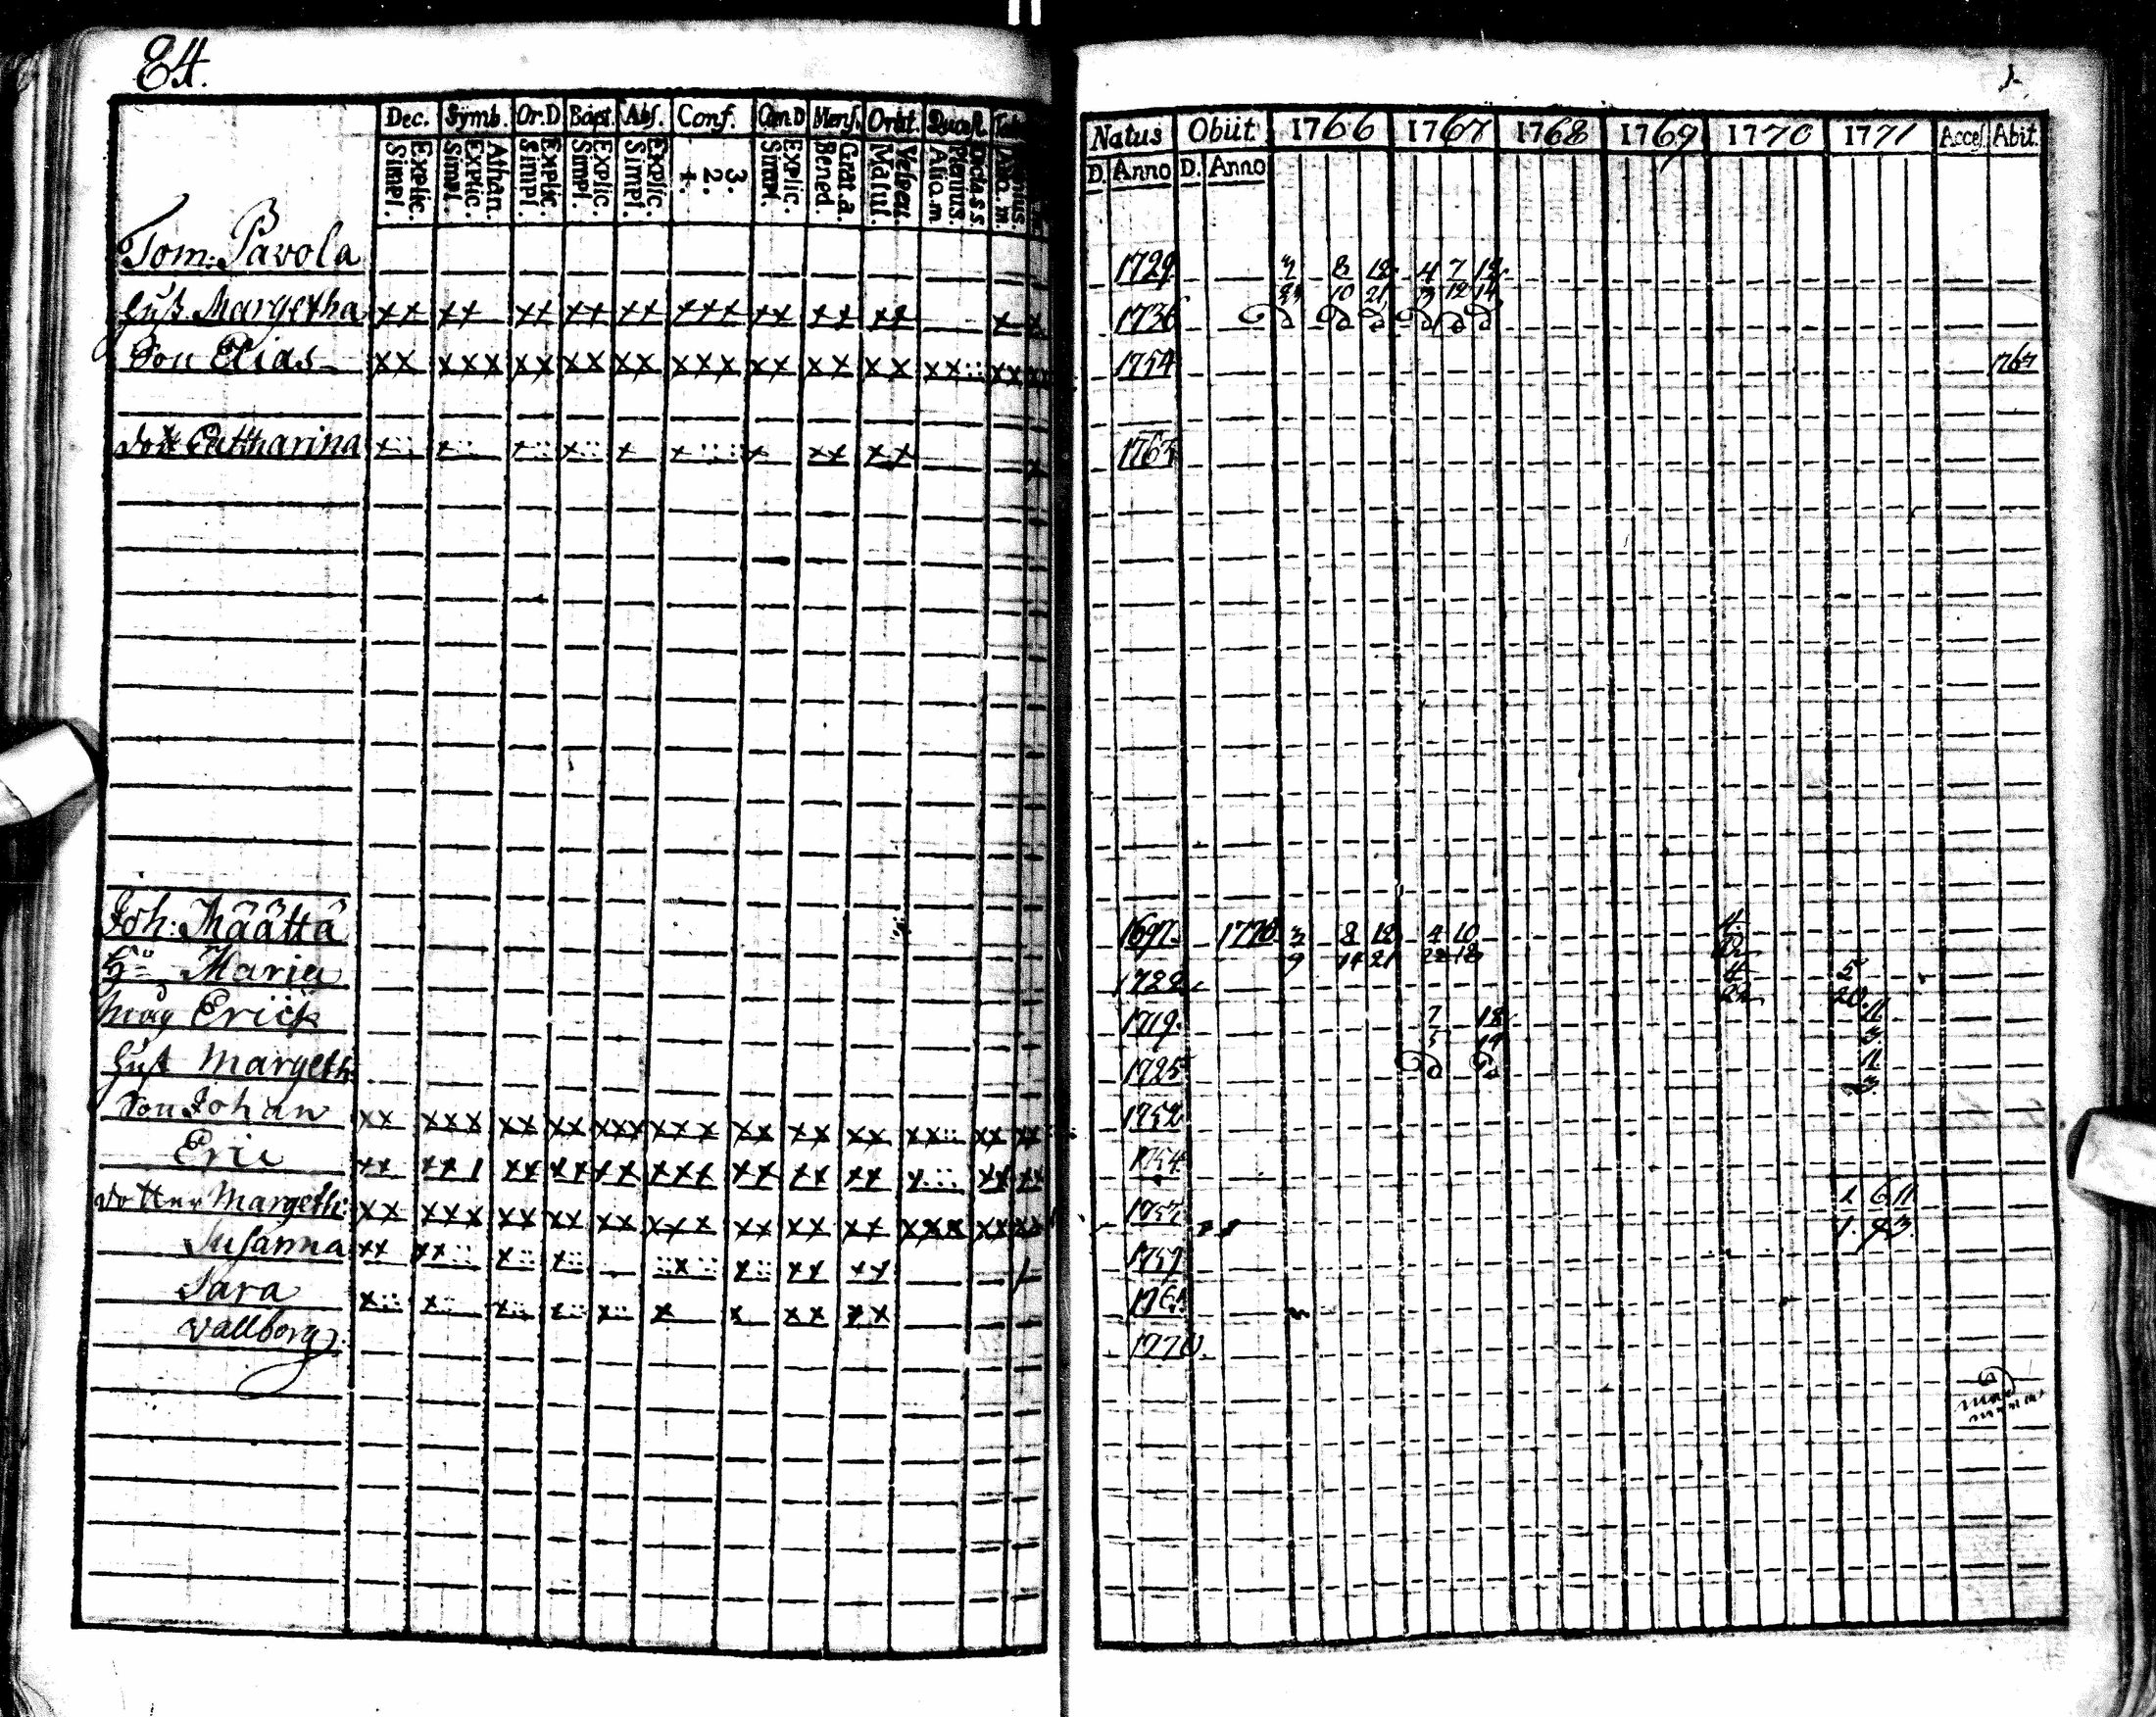 84.
Dec. Symb. Or.D Bapt. Abs. Conf. Cœn.D Mens. Orat. Quæst.
Explic. Simpl. Athan. Explic. Simpl. Explic. Simpl. Explic. Simpl. Explic. Simpl. 3. 2. 1. Explic. Simpl. Grat. a. Bened. Vesper. Matut. Dicta. s.s. Plenius. Alio. m
Natus Obiit 1766 1767 1768 1769 1770 1771 Acces. Abit.
D. Anno D. Anno
Tom: Pavola 1729 8 12 4 7 12
10 21 3 12 14
Hust. Margetha xx xx xx xx xx xxx xx xx xx x x 1736
Son Elias xx xxx xx xx xx xxx xx xx xx xx:: xx xx 1754 1767
Dott Catharina x:: x:: x:: x:: x x:::: x xx xx x
Joh: Määttä 1697 1770 3 8 12 4 10 4
9 14 21 22 18
Hu Maria 1722 4 5
22 20
måg Erick 1719 7 12 11
5 14 3
Hust Margeth: 1725 11
3
Son Johan xx xxx xx xx xxx xxx xx xx xx xx:: xx xx 1752
Eric xx xx1 xx xx xx xxx xx xx xx x::: xx xx 1754
Dotter Margeth: xx xxx xx xx xx xxx xx xx xx xxx xx xx 1757 1 6 11
Susanna xx xx:: x:: x:: ::x:: x:: xx xx 1759 1.
Sara x:: x:: x:: x:: x:: x x xx xx
Vallborg. 1770.